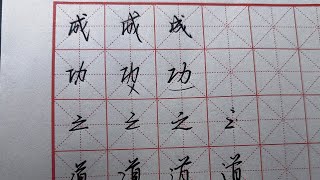 成成成
功功功
之之之之
道道道道